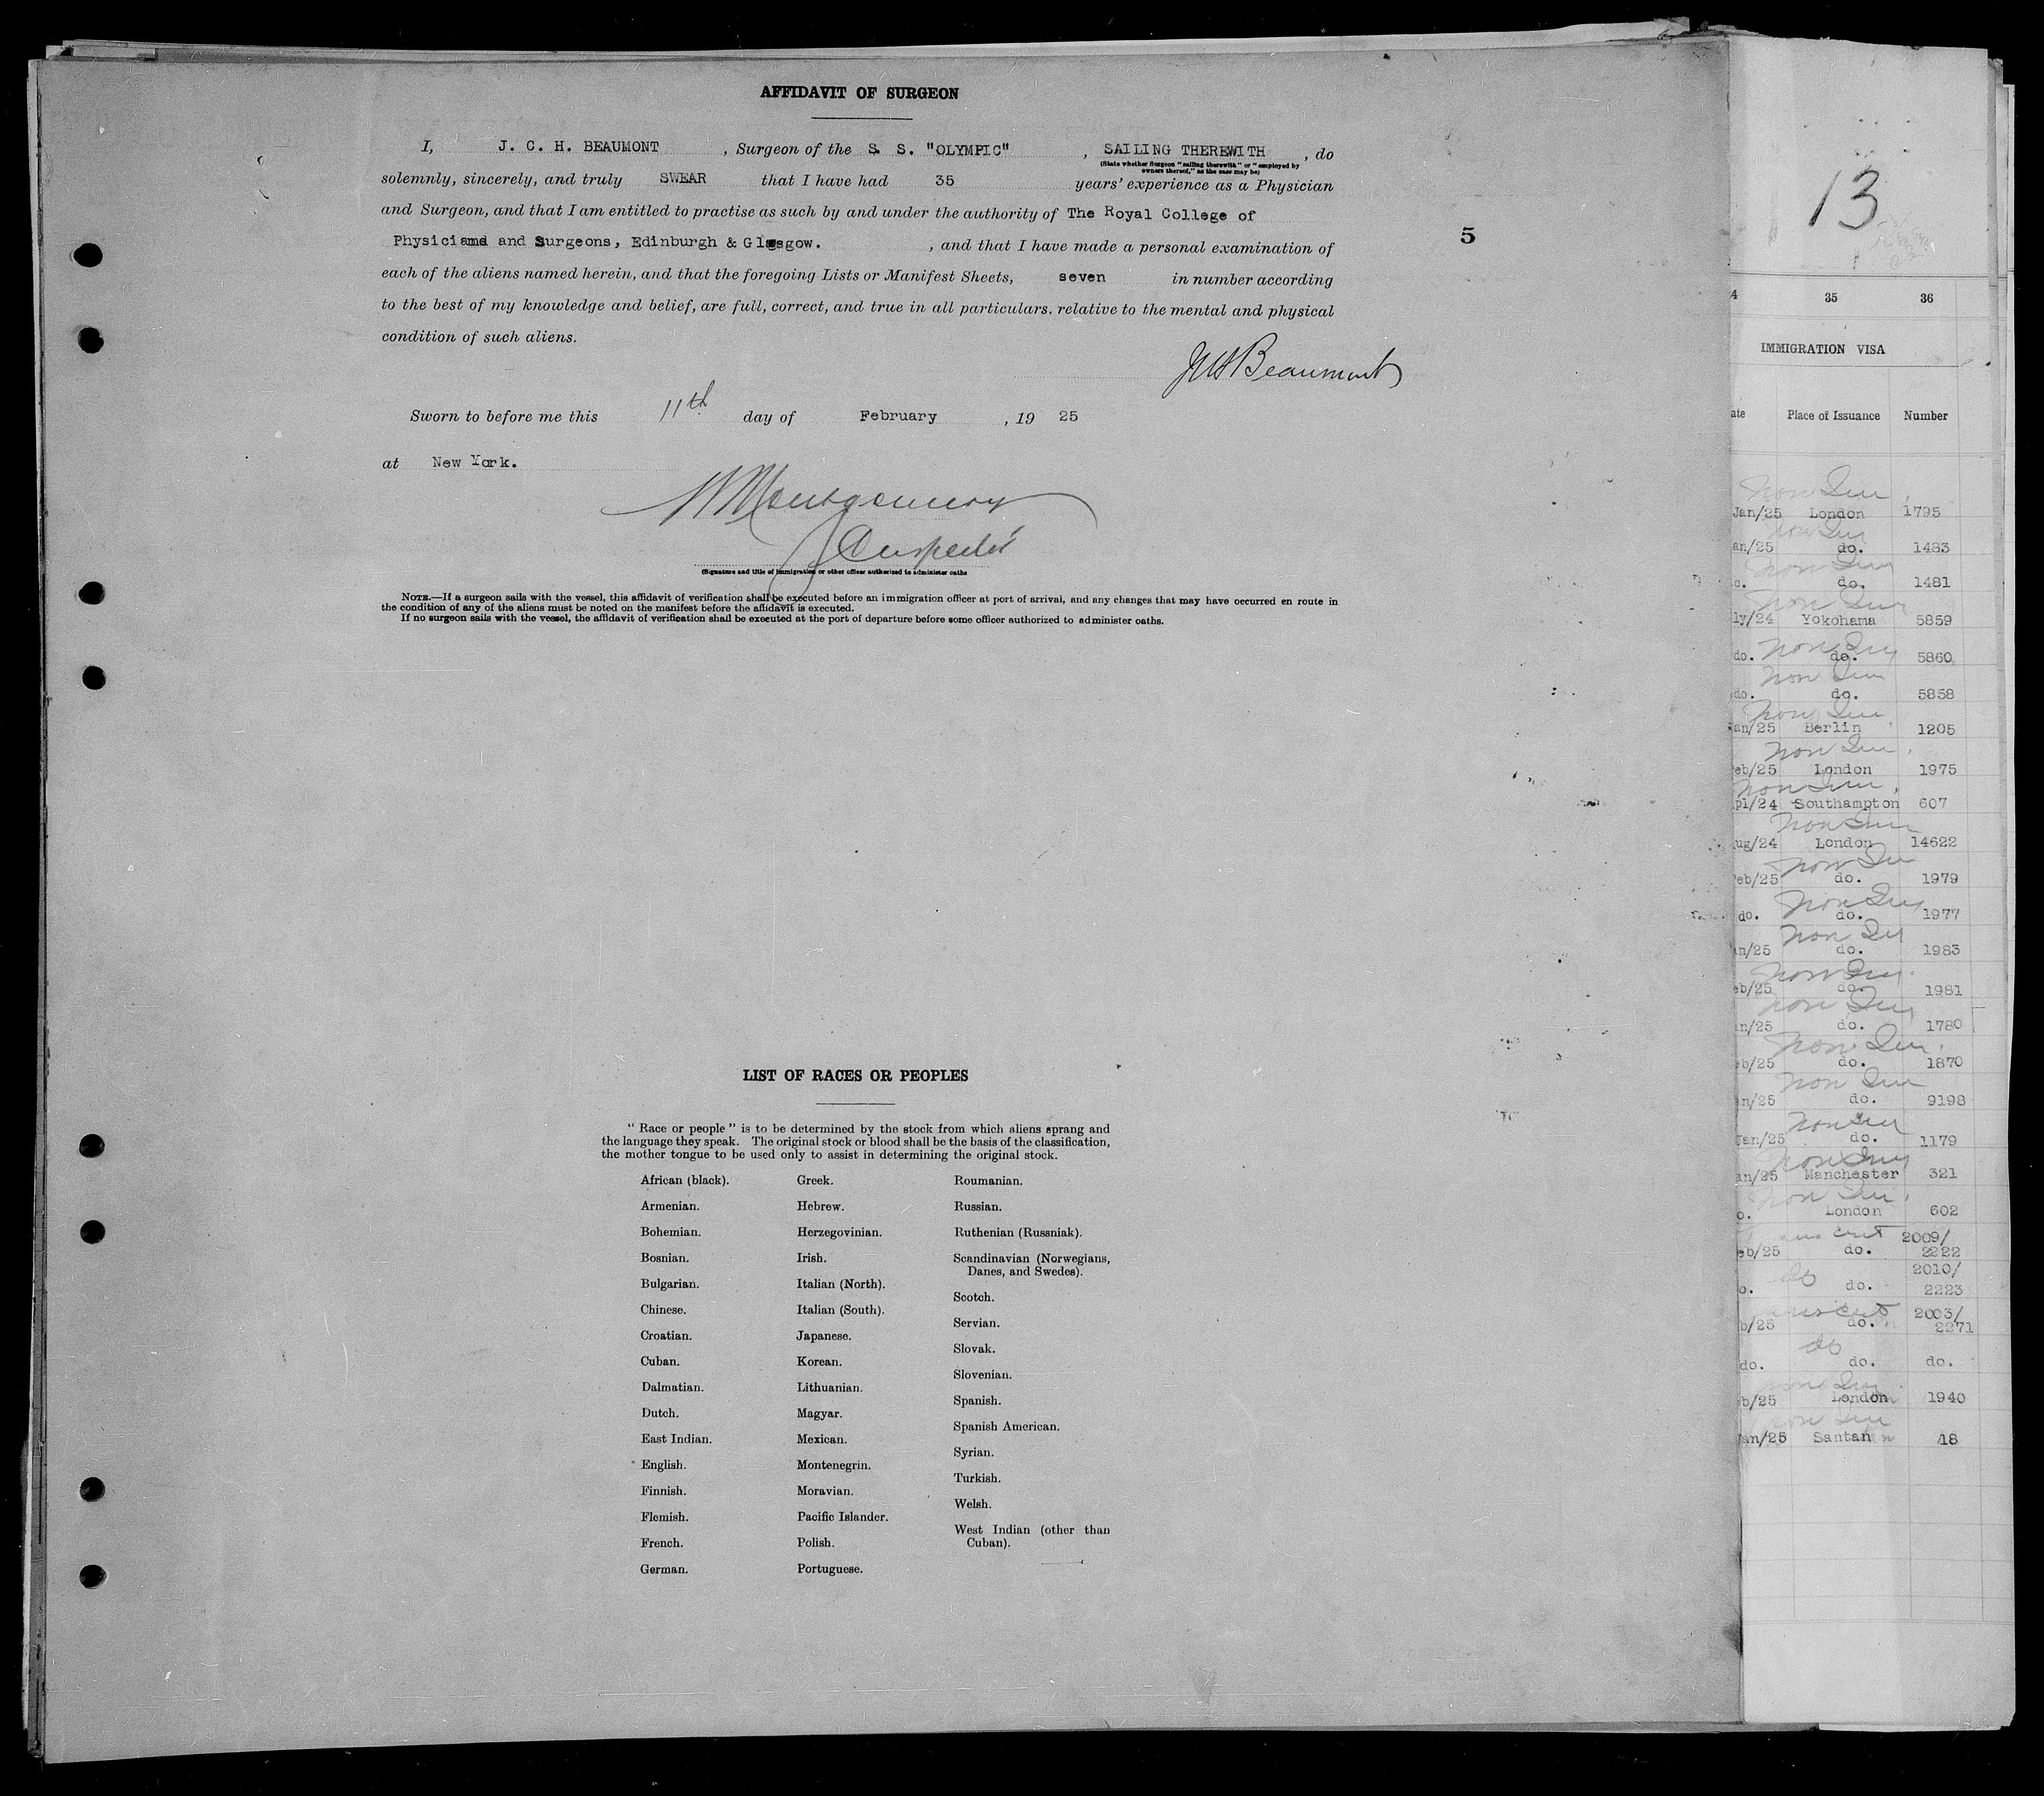 AFFIDAVIT OF SURGEON
I, J. C. H. BEAUMONT , Surgeon of the S. S. "OLYMPIC" , SAILING THEREWITH , do
(State whether Surgeon "sailing therewith" or "employed by
owners thereof," as the case may be)
solemnly, sincerely, and truly SWEAR that I have had 35 years' experience as a Physician
and Surgeon, and that I am entitled to practise as such by and under the authority of The Royal College of
Physicians and Surgeons, Edinburgh & Glasgow. , and that I have made a personal examination of
each of the aliens named herein, and that the foregoing Lists or Manifest Sheets, seven in number according
to the best of my knowledge and belief, are full, correct, and true in all particulars, relative to the mental and physical
condition of such aliens.
JCHBeaumont
Sworn to before me this 11th day of February , 19 25
at New York.
Montgomery
Inspector
(Signature and title of immigration or other officer authorized to administer oaths
NOTE.—If a surgeon sails with the vessel, this affidavit of verification shall be executed before an immigration officer at port of arrival, and any changes that may have occurred en route in
the condition of any of the aliens must be noted on the manifest before the affidavit is executed.
If no surgeon sails with the vessel, the affidavit of verification shall be executed at the port of departure before some officer authorized to administer oaths.
5
LIST OF RACES OR PEOPLES
"Race or people" is to be determined by the stock from which aliens sprang and
the language they speak. The original stock or blood shall be the basis of the classification,
the mother tongue to be used only to assist in determining the original stock.
African (black).
Armenian.
Bohemian.
Bosnian.
Bulgarian.
Chinese.
Croatian.
Cuban.
Dalmatian.
Dutch.
East Indian.
English.
Finnish.
Flemish.
French.
German.
Greek.
Hebrew.
Herzegovinian.
Irish.
Italian (North).
Italian (South).
Japanese.
Korean.
Lithuanian.
Magyar.
Mexican.
Montenegrin.
Moravian.
Pacific Islander.
Polish.
Portuguese.
Roumanian.
Russian.
Ruthenian (Russniak).
Scandinavian (Norwegians,
Danes, and Swedes).
Scotch.
Servian.
Slovak.
Slovenian.
Spanish.
Spanish American.
Syrian.
Turkish.
Welsh.
West Indian (other than
Cuban).
13
4 35 36
IMMIGRATION VISA
ate Place of Issuance Number
Non Im
Jan/25 London 1795
Non Im
an/25 do. 1483
Non Im
o. do. 1481
Non Im
ly/24 Yokohama 5859
Non Im
do. do. 5860
Non Im
do. do. 5858
Non Im
an/25 Berlin 1205
Non Im
eb/25 London 1975
Non Im
pl/24 Southampton 607
Non Im
ug/24 London 14622
Non Im
eb/25 do. 1979
Non Im
do. do. 1977
Non Im
an/25 do. 1983
Non Im
eb/25 do. 1981
Non Im
n/25 do. 1780
Non Im
b/25 do. 1870
Non Im
n/25 do. 9198
Non Im
Jan/25 do. 1179
Non Im
an/25 Manchester 321
Non Im
o. London 602
cert 2009/
eb/25 do. 2222
do 2010/
o. do. 2223
cert 2003/
b/25 do. 2271
do
do. do. do.
Non Im
b/25 London 1940
Non Im
Jan/25 Santan 18